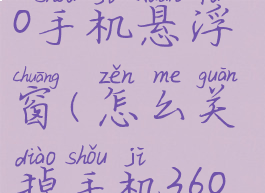 0手机悬浮
chuāng zěn me guān
窗(怎么关
diào shǒu jī
掉手机360